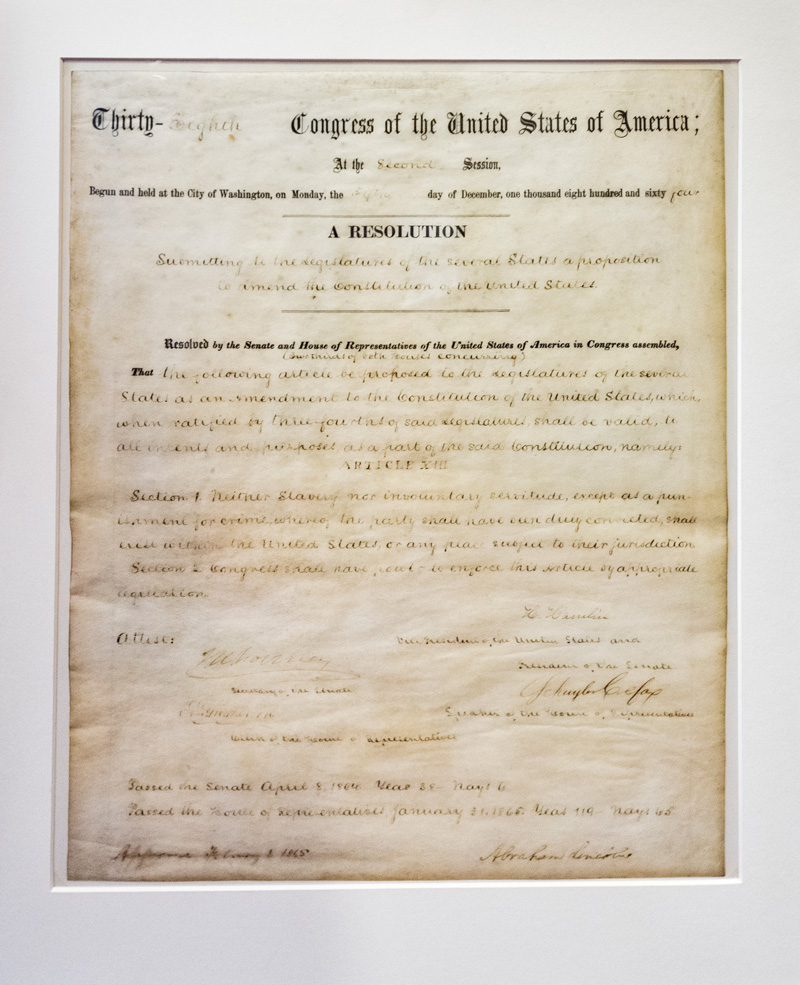 Thirty-Eighth Congress of the United States of America;
At the Second Session,
Begun and held at the City of Washington, on Monday, the day of December, one thousand eight hundred and sixty four
A RESOLUTION
Submitting to the legislatures of the several States a proposition
to amend the Constitution of the United States.
Resolved by the Senate and House of Representatives of the United States of America in Congress assembled,
(two thirds of both houses concurring)
That the following article be proposed to the legislatures of the several
States as an amendment to the Constitution of the United States, which,
when ratified by three-fourths of said Legislatures, shall be valid, to
all intents and purposes as a part of the said Constitution, namely:
ARTICLE XIII
Section 1. Neither Slavery nor involuntary servitude, except as a pun-
ishment for crime, whereof the party shall have been duly convicted, shall
exist within the United States, or any place subject to their jurisdiction.
Section 2. Congress shall have power to enforce this article by appropriate
legislation.
H. Hamlin
Attest:
Vice President of the United States and
President of the Senate
Secretary of the Senate
Schuyler Colfax
Speaker of the House of Representatives
Clerk of the House of Representatives
Passed the Senate April 8, 1864. Yeas 38 Nays 6
Passed the House of Representatives January 31, 1865. Yeas 119 Nays 
Approved February 1 1865
Abraham Lincoln